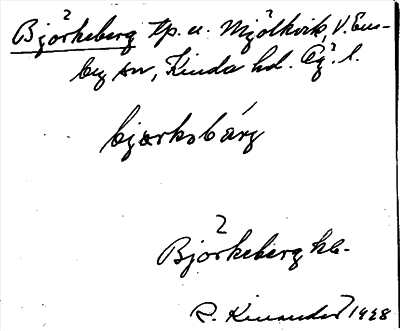 Björkeberg tp. u. Mjölkvik, V. Ene-
by sn, Kinda hd. Ög. l.
bjœrkobárg
Björkeberg hb.
R. Kinander 1928